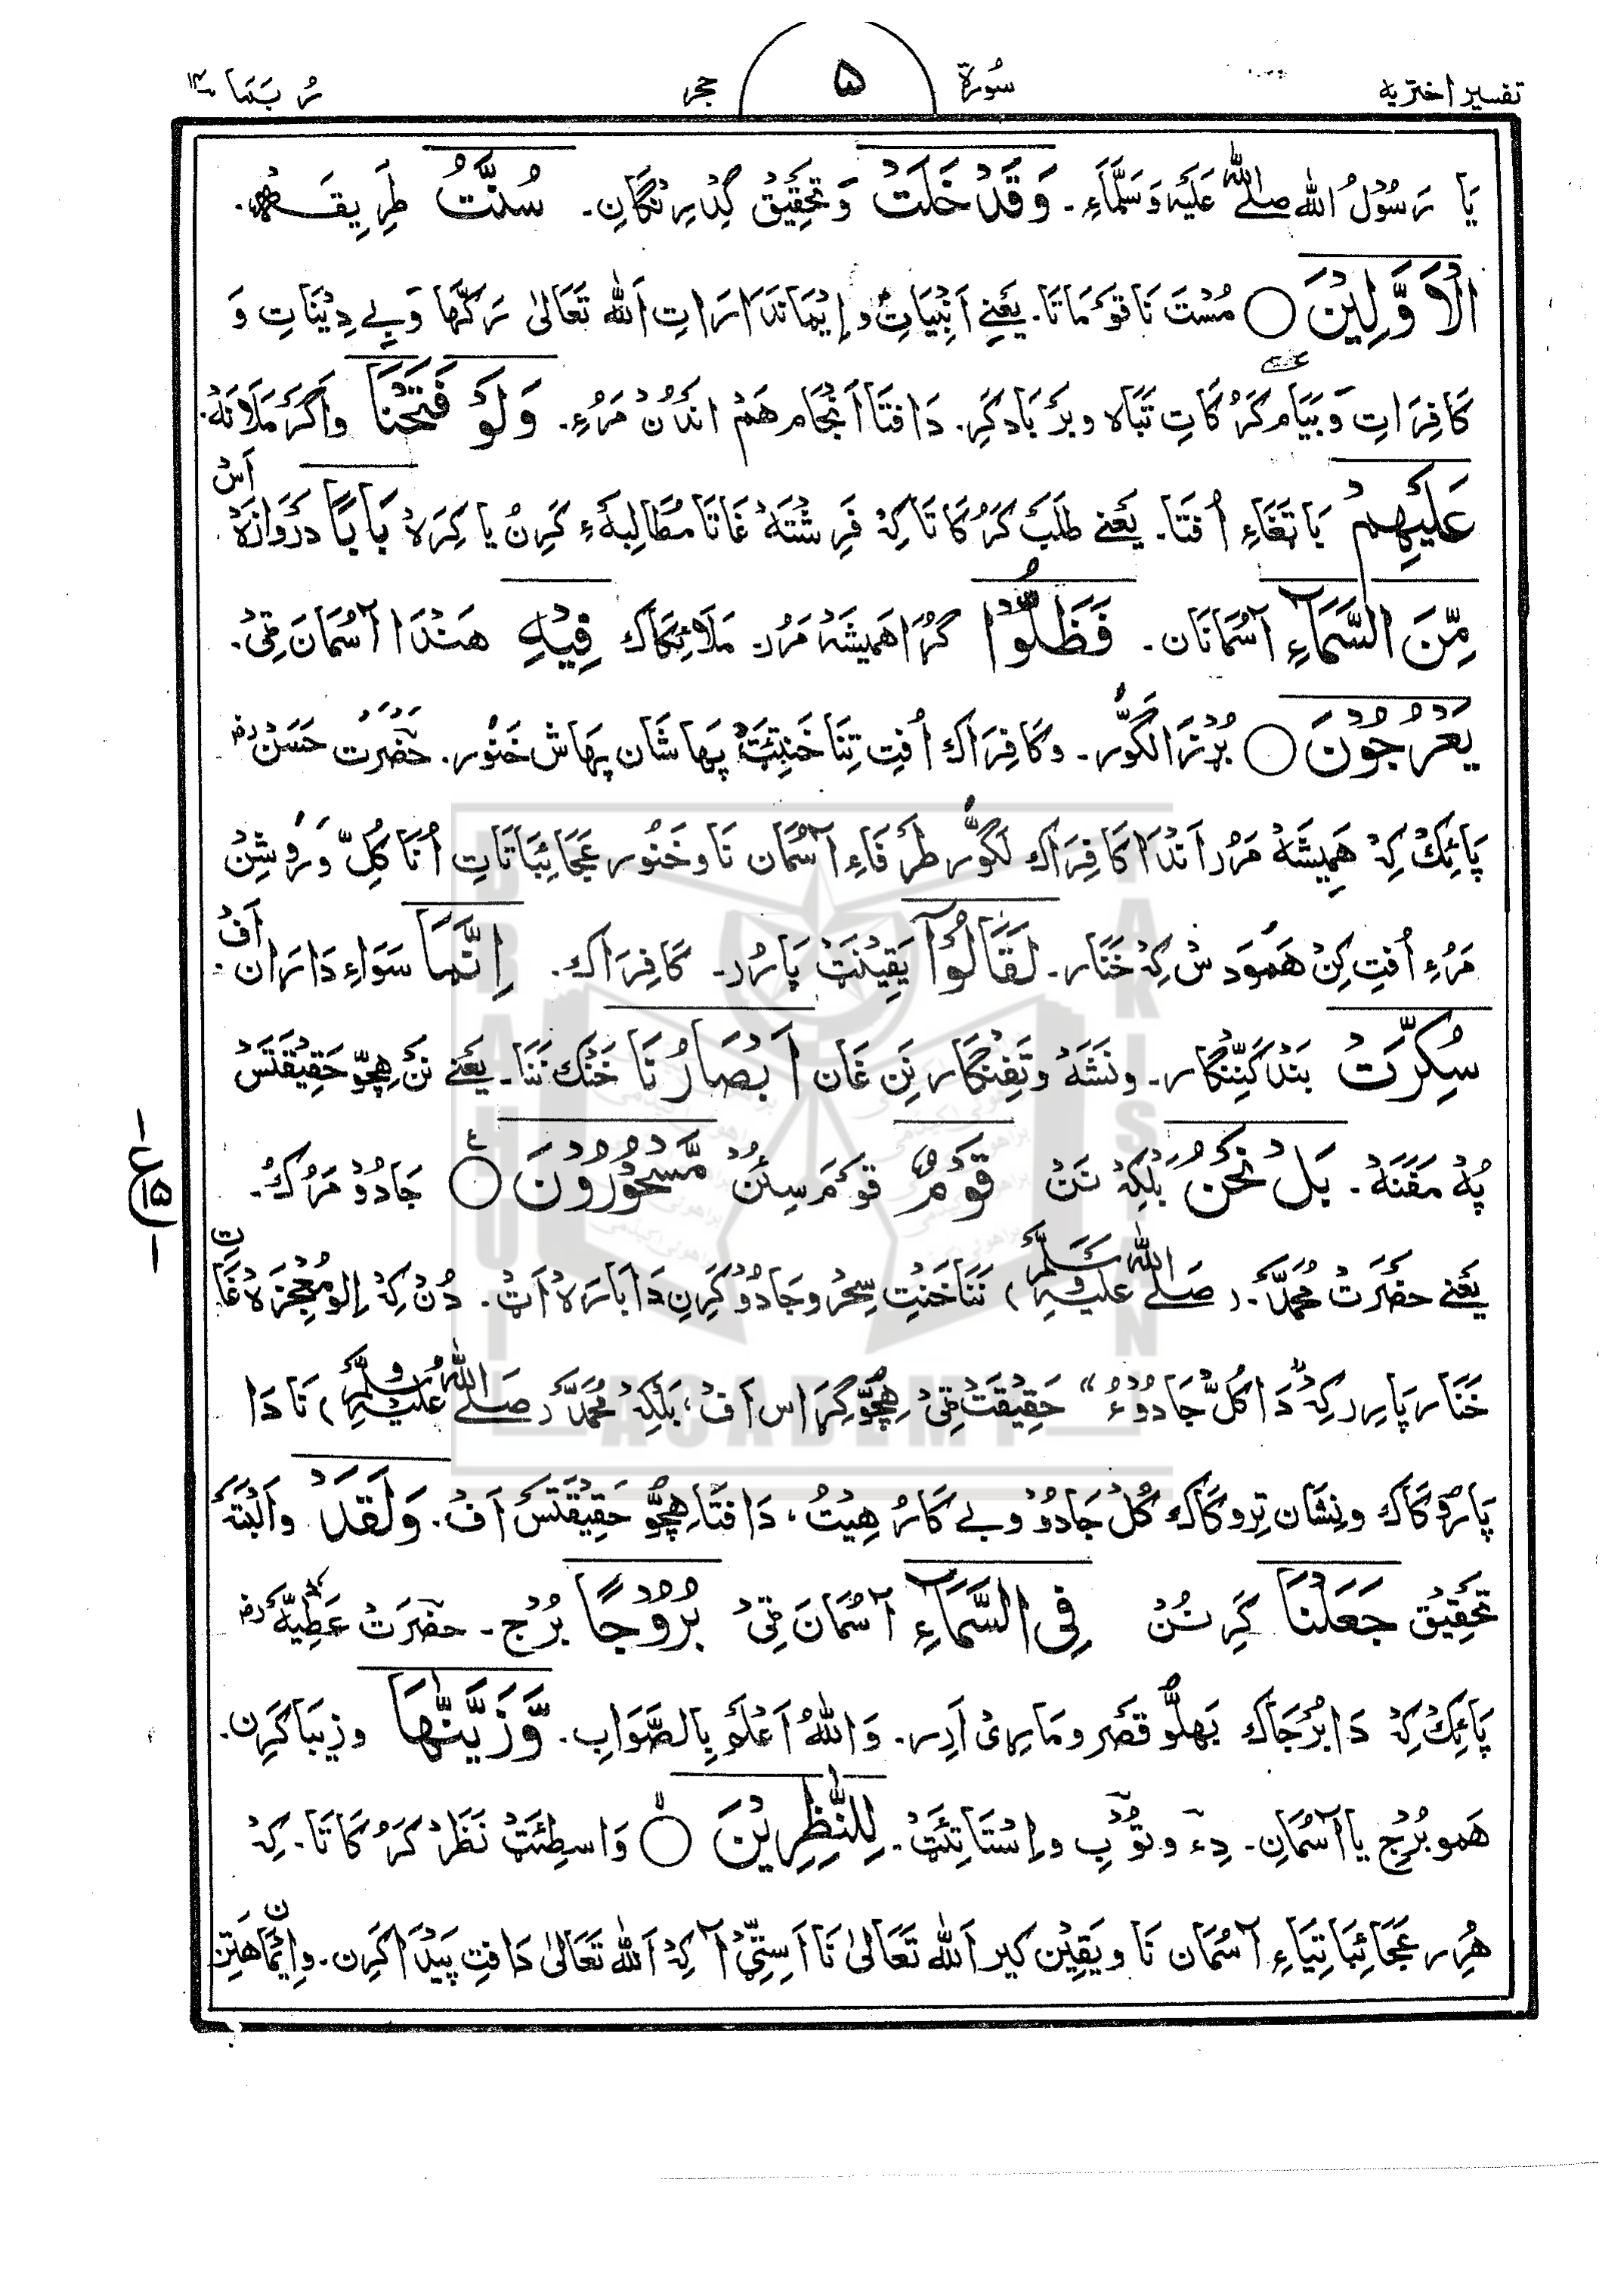 تفسیر اختریه سُورة ۵ حجر رُبَمَا ۱۴
یَا رَسُوْلُ اللّٰه صلے اللّٰه عَلَیْه وَسَلَّمْاَءِ۔ وَقَدْ خَلَتْ وَتَحْقِیْقْ گِدْرِنْگَانِ۔ سُنَّتُ طَرِیقَہ۔
الْاَوَّلِیْنَ ○ مُسْتَ نَا قَوْمَاتَا۔ یَعْنِے اَنْبِیَاتِ و اِیْمَانْدَارَاتِ اَللّٰه تَعَالیٰ رَکّھَا وَبِے دِیْنَاتِ وَ
کَافِرَاتِ وَبَیَام کَرُکَاتِ تَبَاه و بَرْبَاد کَرِ۔ دَافْتَا اَنْجَام هَمْ اَنْدُنْ مَرُءِ۔ وَلَوْ فَتَحْنَا وَاگَرْ مَلَانَهْ
عَلَیْهِمْ بَاتَغَاءِ اُفْتَا۔ یَعْنے طَلَبْ کَرُکَاتَا کِهْ فَرِشْتَهْ غَاتَا مُطَالِبَهْءِ کَرِنْ یَا کِرَهْ بَابًا دَرْوَازَهْ اَسْ
مِّنَ السَّمَآءِ آسْمَانَان۔ فَظَلُّوْا گُڑَا هَمِیْشَهْ مَرُر مَلَائِکَاک فِیْهِ هَنْدَا آسْمَانَ ٹِیْ۔
یَعْرُجُوْنَ ○ بُرْزَا لَگُّوْر۔ وکَافِرَاک اُفْتِ تِنَا خَنْتِیَٹْ پَهَاشَان پَهَاش خَنُوْر۔ حَضْرَت حَسَنْ رض
پَائِکْ کِهْ هَمِیْشَهْ مَرُر اَنْدَا کَافِرَاک لَگُّوْر طَرَفَاءِ آسْمَان نَا وخَنُوْر عَجَائِبَاتَاتِ اُنَا کُلّ وَرُوْشِنْ
مَرُءِ اُفْتِ کِنْ هَمُوْ دَسْ کِهْ خَنَار۔ لَقَالُوْآ یَقِیْنَٹْ پَارُر۔ کَافِرَاک۔ اِنَّمَا سَوَاءِ دَارَان اَفْ۔
سُکِّرَتْ بَنْد کَنِنْگَار۔ ونَشَهْ وتَفِنْگَار نَن غَان اَبْصَارُنَا خَنْک نَنَا۔ یَعْنے نَنْ هِچُّو حَقِیْقَتَسْ
پُهْ مَفَنَهْ۔ بَلْ نَحْنُ بَلْکِهْ نَنْ قَوْمٌ قَوْمَ سِئَنْ مَّسْحُوْرُوْنَ ○ ع جَادُوْ مَرُکْ۔
یَعْنے حَضْرَتْ مُحَمَّدْ۔ (صَلے اللّٰه عَلَیْهِ وَسَلَّمَ) نَنَا خَنْتِ سِحْر وجَادُوْ کَرِن دَا بَارَهْ اَٹْ۔ دُنْ کِهْ اِلو مُعْجِزَهْ غَاتِ
خَنَار پَارِر کِهْ "دَا کُلّ جَادُوْءُ" حَقِیْقَتْ ٹِیْ هِچُّو گِڑَاس اَفْ، بَلْکِهْ مُحَمَّدْ (صَلے اللّٰه عَلَیْهِ وَسَلَّمَ) نَا دَا
پَارُوکَاک ونِشَان تِروکَاک کُلْ جَادُوْ وبے کَارُ هِیْتُ، دَافْتَا هِچُّو حَقِیْقَتَسْ اَفْ۔ وَلَقَدْ وَاَلْبَتَّهْ
تَحْقِیْق جَعَلْنَا کَرِنُنْ فِی السَّمَآءِ آسْمَانَ ٹِیْ بُرُوْجًا بُرْج۔ حضرَتْ عَطِیَّهْ رض
پَائِکْ کِهْ دَا بُرْجَاک بَهلُّو قَصْر ومَارِی اَدِر۔ وَاللّٰهُ اَعْلَمُ بِالصَّوَابِ۔ وَّزَیَّنّٰهَا وزِیبَا کَرِن۔
هَمو بُرْجِ یا آسْمَانِ۔ دِےْ وتُوْبِ واِسْتَاتِئَٹْ۔ لِلنّٰظِرِیْنَ ○ وَاسِطِئَٹْ نَظَرْ کَرُکَاتَا۔ کِهْ
هُرِر عَجَائِبَاتِیَاءِ آسْمَان نَا ویَقِیْن کیر اَللّٰه تَعَالیٰ نَا اَسِٹِّیْ آ کِهْ اَللّٰه تَعَالیٰ دَافْتِ پَیْدَا کَرِن۔ واِیْمَان هَتِن
-۱۵-
BRAHUI ACADEMY PAKISTAN